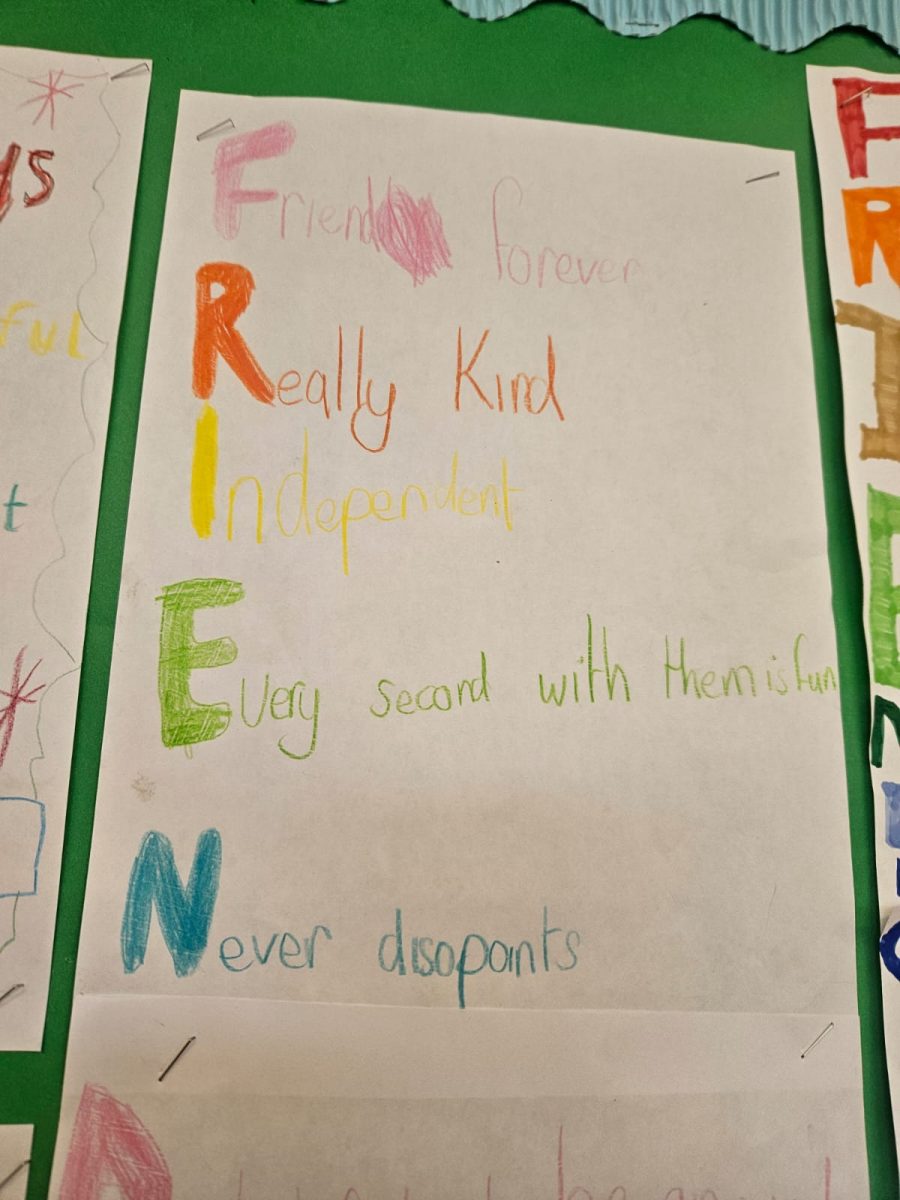 Friend forever
Really Kind
Independent
Every second with them is fun
Never disopoints